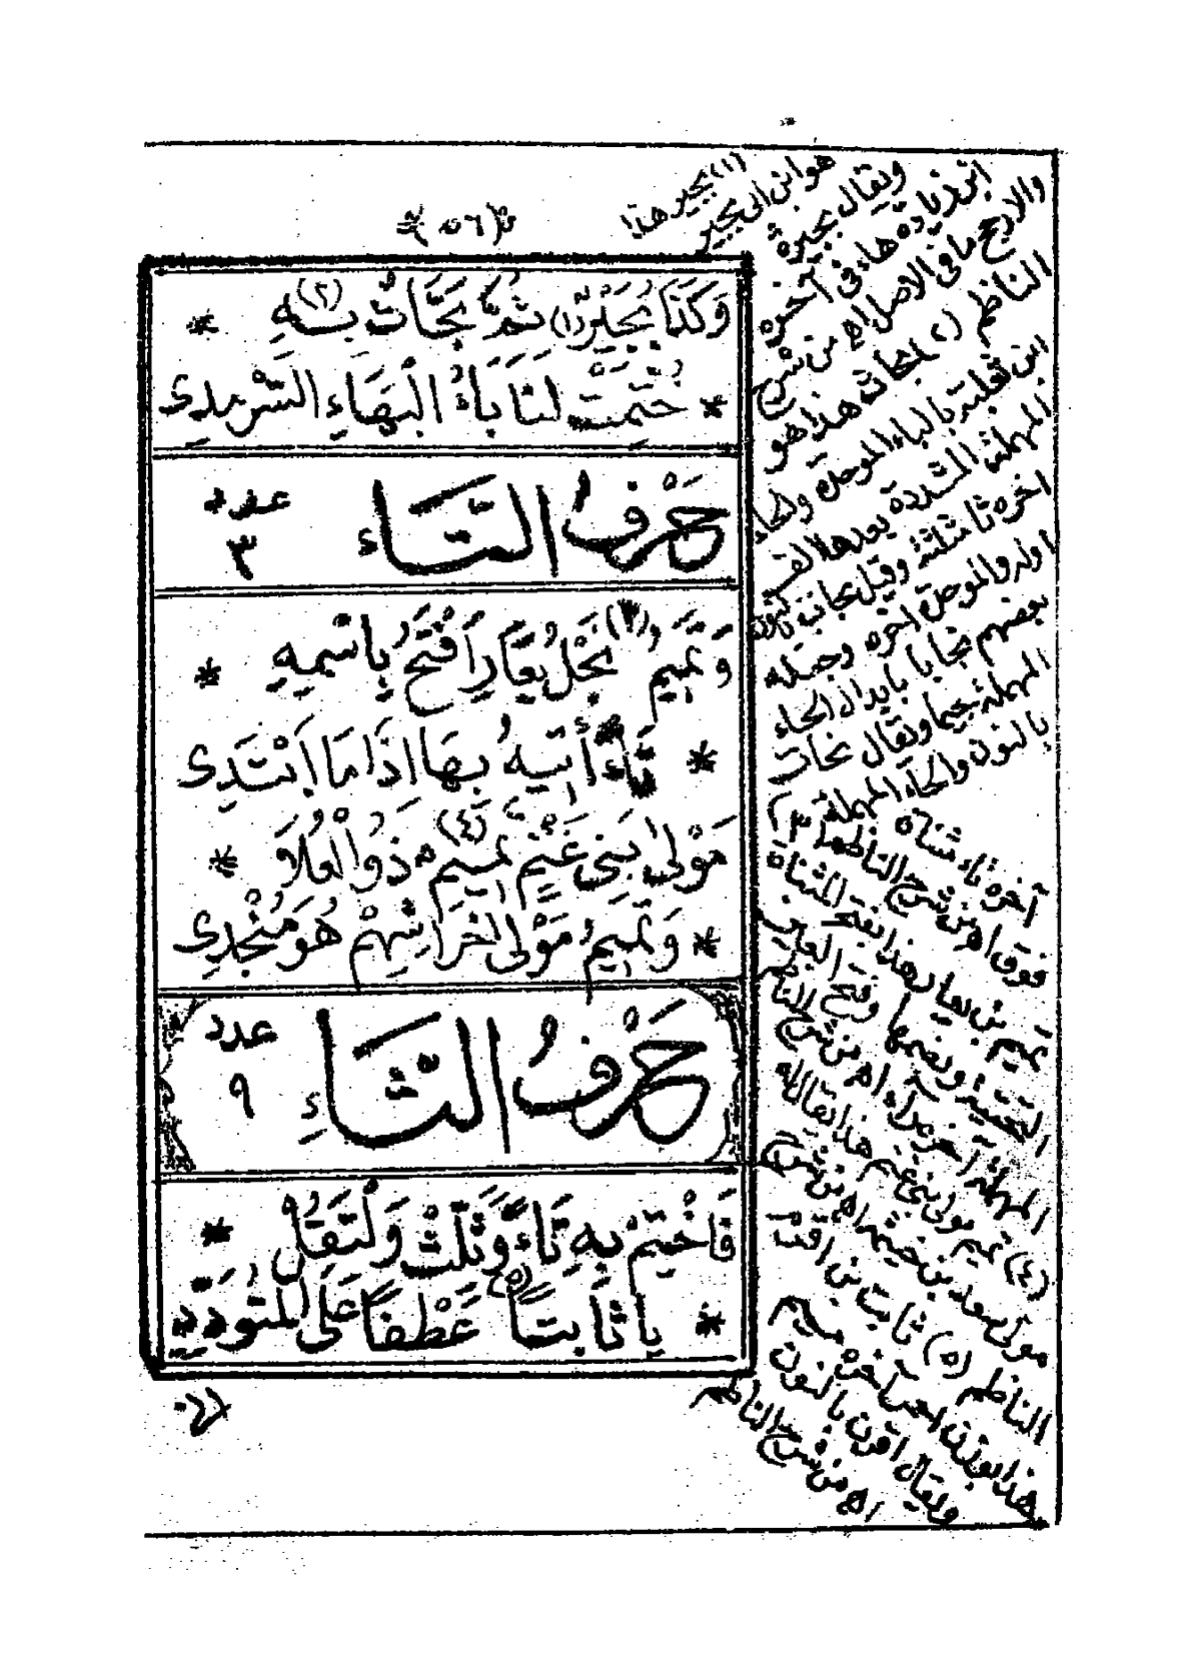 (٥٦)
وَكَذَا بُجَيْرٌ (١) ثُمَّ بَحَّاثٌ (٢) بِهِ *
* خُتِمَتْ لَنَا بَاءُ الْبَهَاءِ السَّرْمَدِى
حَرْفُ التَّاء عدد ٣
وَتَمِيمُ (٣) نَجْلُ يعَارِ افْتَحْ بِاسْمِهِ *
* تَاءً أَتِيهُ بِهَا اذَا مَا ابْتَدِى
مَوْلَى بَنِى غَنْمٍ تَمِيمٌ (٤) ذُو الْعُلَا *
* وَتَمِيمُ مَوْلَى اخَرَاشِهِمْ هُوَ مُنْجِدِى
حَرْفُ الثَّاءِ عدد ٩
فَاخْتِمْ بِهِ تَاءً وَثَلِّثْ وَلْتَقُلْ *
* يَا ثَابِتًا (٥) عَطْفًا عَلَى الْمُتَوَدِّدِ
(١) بجير هذا
هو ابن ابى بجير
ويقال بجيرة
ابن زيادة هاء فى آخره
والارجح ما فى الاصل اهـ من شرح
الناظم (٢) بحاث هذا هو
ابن ثعلبة بالباء الموحدة والحاء
المهملة المشددة بعدها الف
اخره ثاء مثلثة وقيل بحاب
اوله والموحدة اخره وجعله
بعضهم نجابا بابدال الحاء
المهملة جيما ويقال نحات
بالنون والحاء المهملة
آخره تاء مثناة
فوق اهـ من شرح الناظم (٣)
تميم بن يعار هذا بفتح المثناة
التحتية وبضمها وفتح العين
المهملة آخره راء اهـ من شرح الناظم
(٤) تميم مولى بنى غنم هذا يقال له
مولى سعد بن خيثمة اهـ من شرح
الناظم (٥) ثابت بن اقرم
هذا بوزن احمر آخره ميم
ويقال اقرن بالنون
اهـ من شرح الناظم